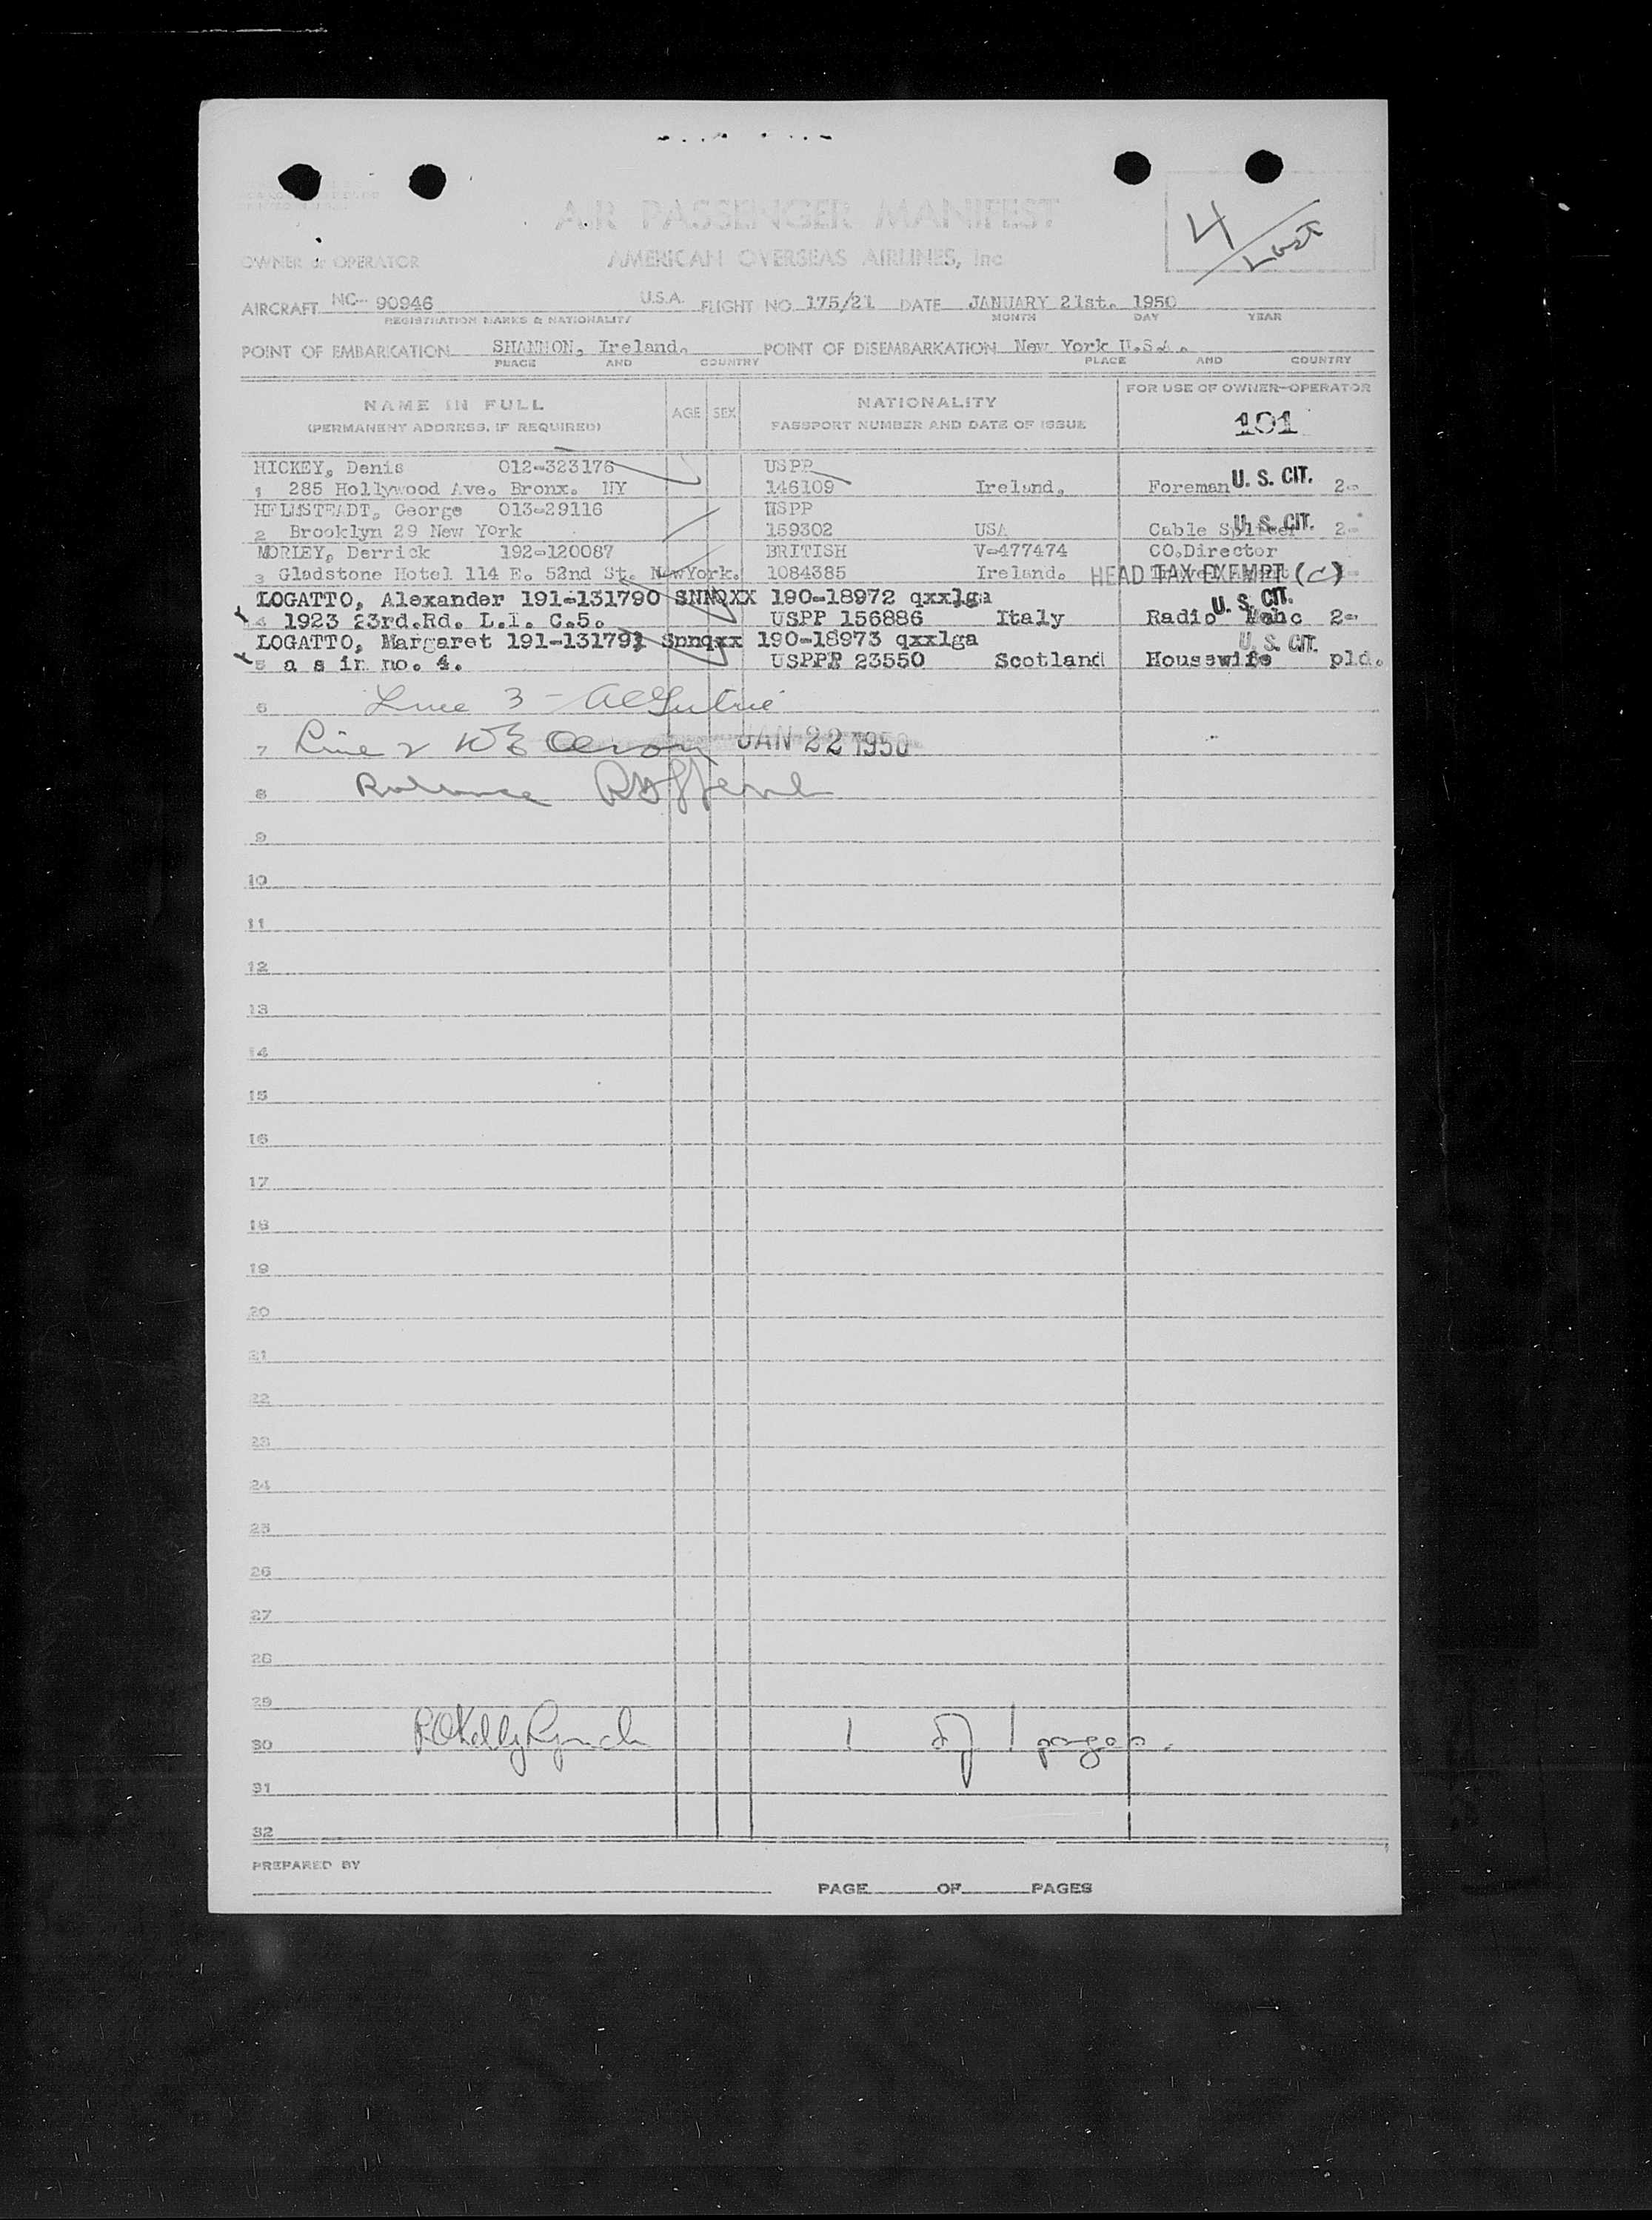 AIR PASSENGER MANIFEST
4/Last
OWNER or OPERATOR AMERICAN OVERSEAS AIRLINES, Inc
AIRCRAFT NC- 90946 U.S.A. FLIGHT NO 175/21 DATE JANUARY 21st. 1950
REGISTRATION MARKS & NATIONALITY MONTH DAY YEAR
POINT OF EMBARKATION SHANNON, Ireland. POINT OF DISEMBARKATION New York U.S.A.
PLACE AND COUNTRY PLACE AND COUNTRY
NAME IN FULL AGE SEX NATIONALITY FOR USE OF OWNER-OPERATOR
(PERMANENT ADDRESS, IF REQUIRED) PASSPORT NUMBER AND DATE OF ISSUE 101
HICKEY, Denis 012-323176 USPP
1 285 Hollywood Ave. Bronx. NY 146109 Ireland. Foreman U. S. CIT. 2-
HELMSTEADT, George 013-29116 USPP
2 Brooklyn 29 New York 159302 USA Cable Splicer U. S. CIT. 2-
MORLEY, Derrick 192-120087 BRITISH V-477474 CO.Director
3 Gladstone Hotel 114 E. 52nd St. NewYork. 1084385 Ireland. HEAD TAX EXEMPT (C)
LOGATTO, Alexander 191-131790 SNNQXX 190-18972 qxxlga
4 1923 23rd.Rd. L.I. C.5. USPP 156886 Italy Radio Mehc U. S. CIT. 2-
LOGATTO, Margaret 191-131791 Snnqxx 190-18973 qxxlga
5 a s in no. 4. USPPR 23550 Scotland Housewife U. S. CIT. pld.
6 Line 3 -
7 Line 2 JAN 22 1950
8
9
10
11
12
13
14
15
16
17
18
19
20
21
22
23
24
25
26
27
28
29
30 1 of 1 pages.
31
32
PREPARED BY
PAGE OF PAGES